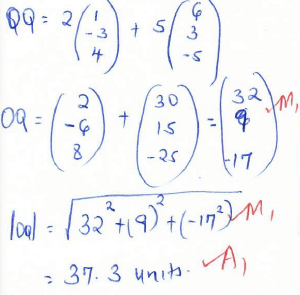 OQ = 2 (1 -3 4) + 5 (6 3 -5)
OQ = (2 -6 8) + (30 15 -25) = (32 9 -17) M1
|OQ| = √(32² + (9)² + (-17²) M1
= 37.3 units. A1